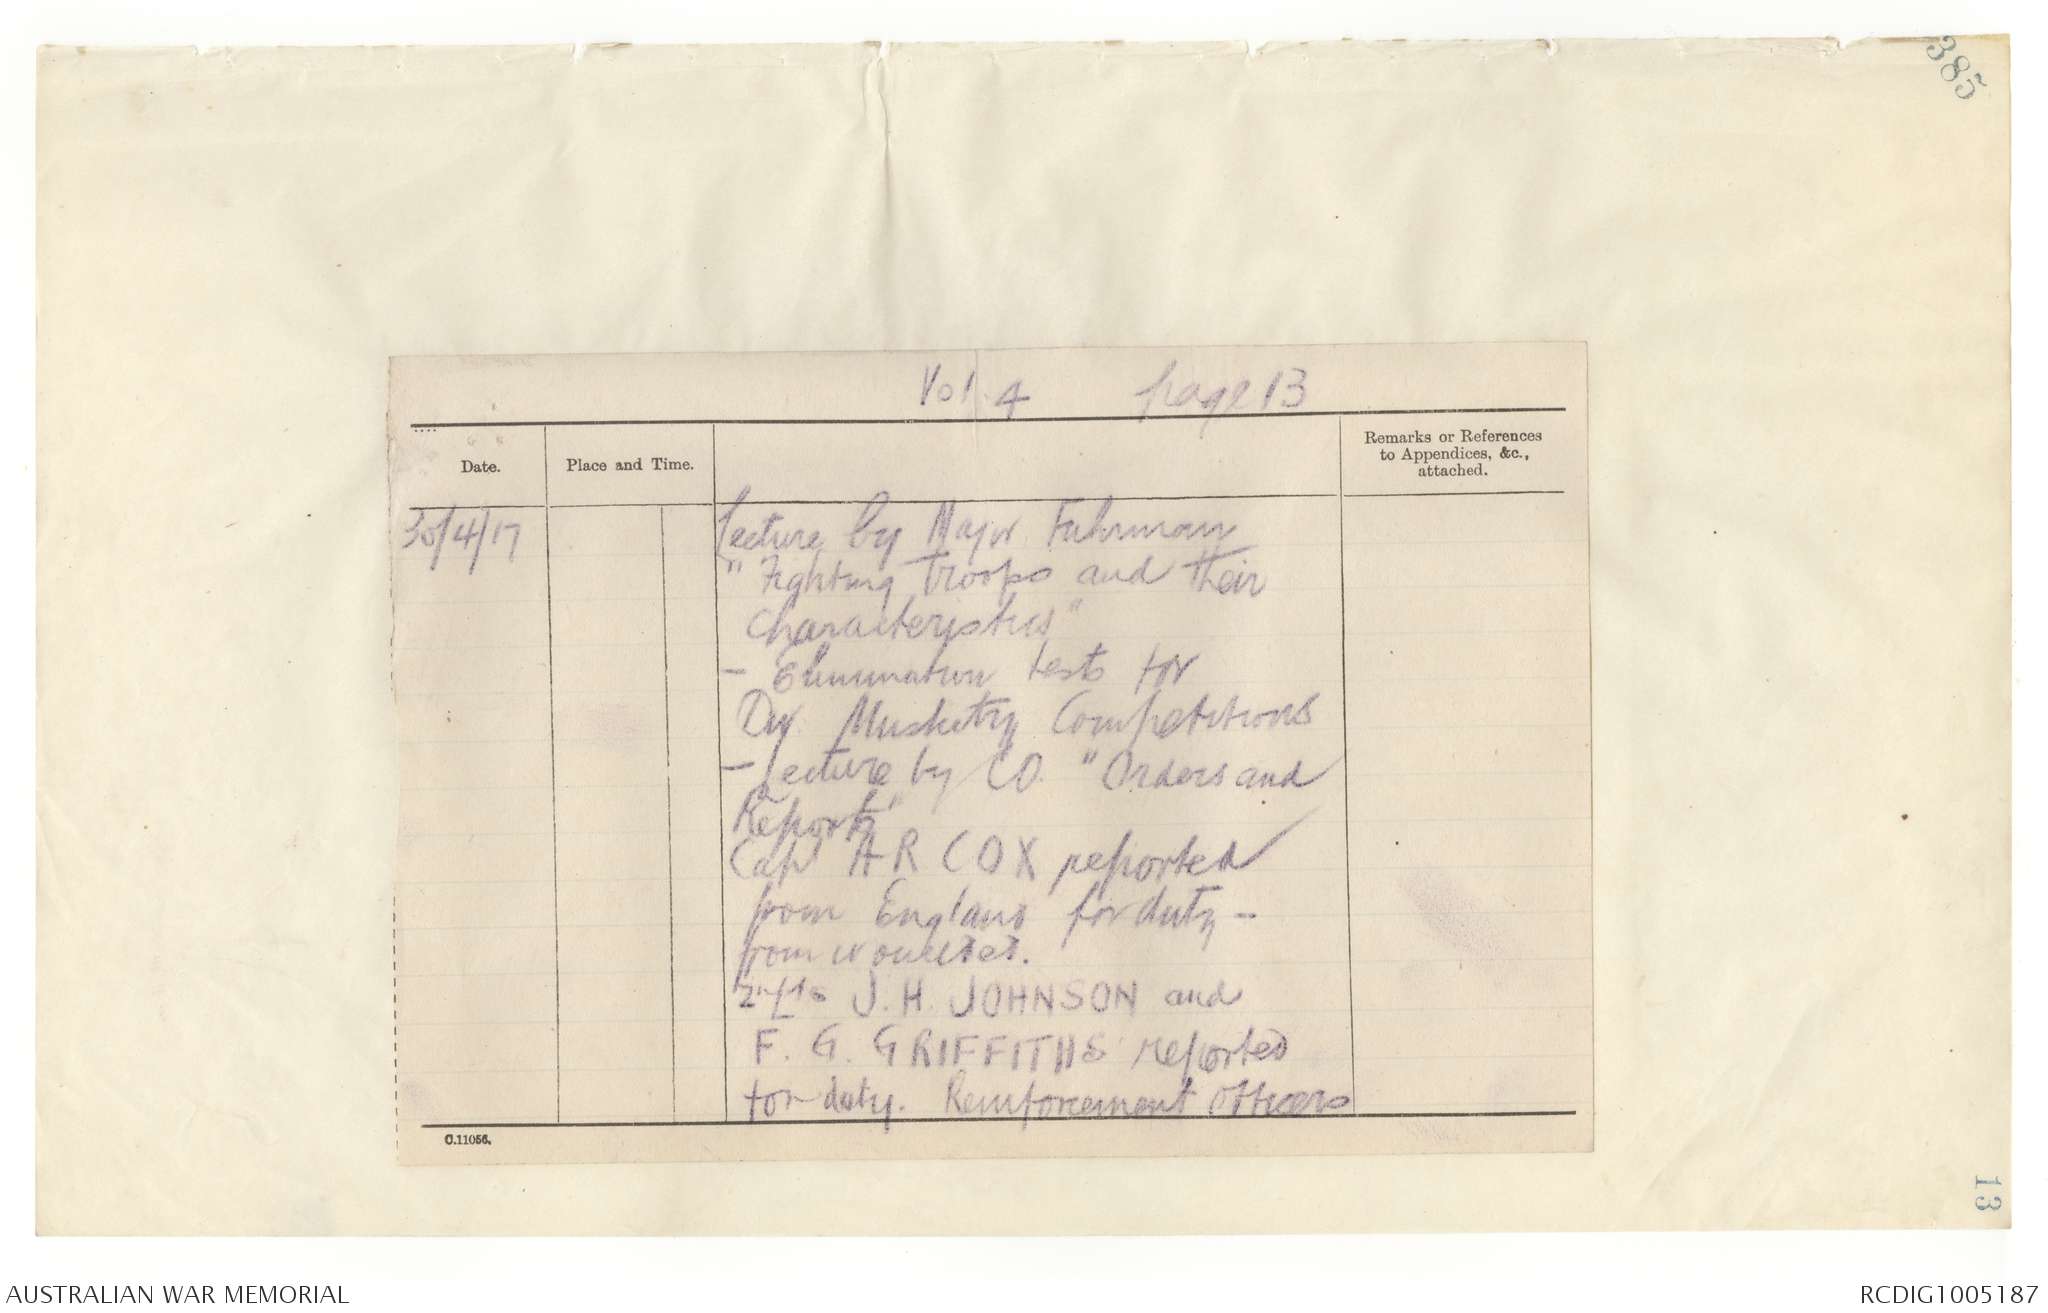 385
Vol. 4 page 13
Date.
Place and Time.
Remarks or References
to Appendices, &c.,
attached.
30/4/17
Lecture by Major Fuhrman
"Fighting Troops and their
Characteristics"
- Elimination tests for
Div. Musketry Competitions
- Lecture by CO. "Orders and
Reports"
Capt A R COX reported
from England for duty -
from
2nd/Lts J. H. JOHNSON and
F. G. GRIFFITHS reported
for duty. Reinforcement Officers
C.11056.
13
AUSTRALIAN WAR MEMORIAL
RCDIG1005187